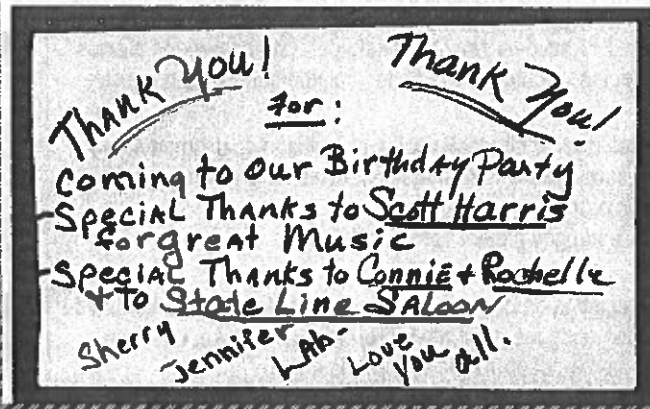 Thank You! Thank You!
For:
coming to our Birthday Party
- Special Thanks to Scott Harris
for great Music
- Special Thanks to Connie + Rochelle
+ to State Line Saloon
Sherry Jennifer Love You all.